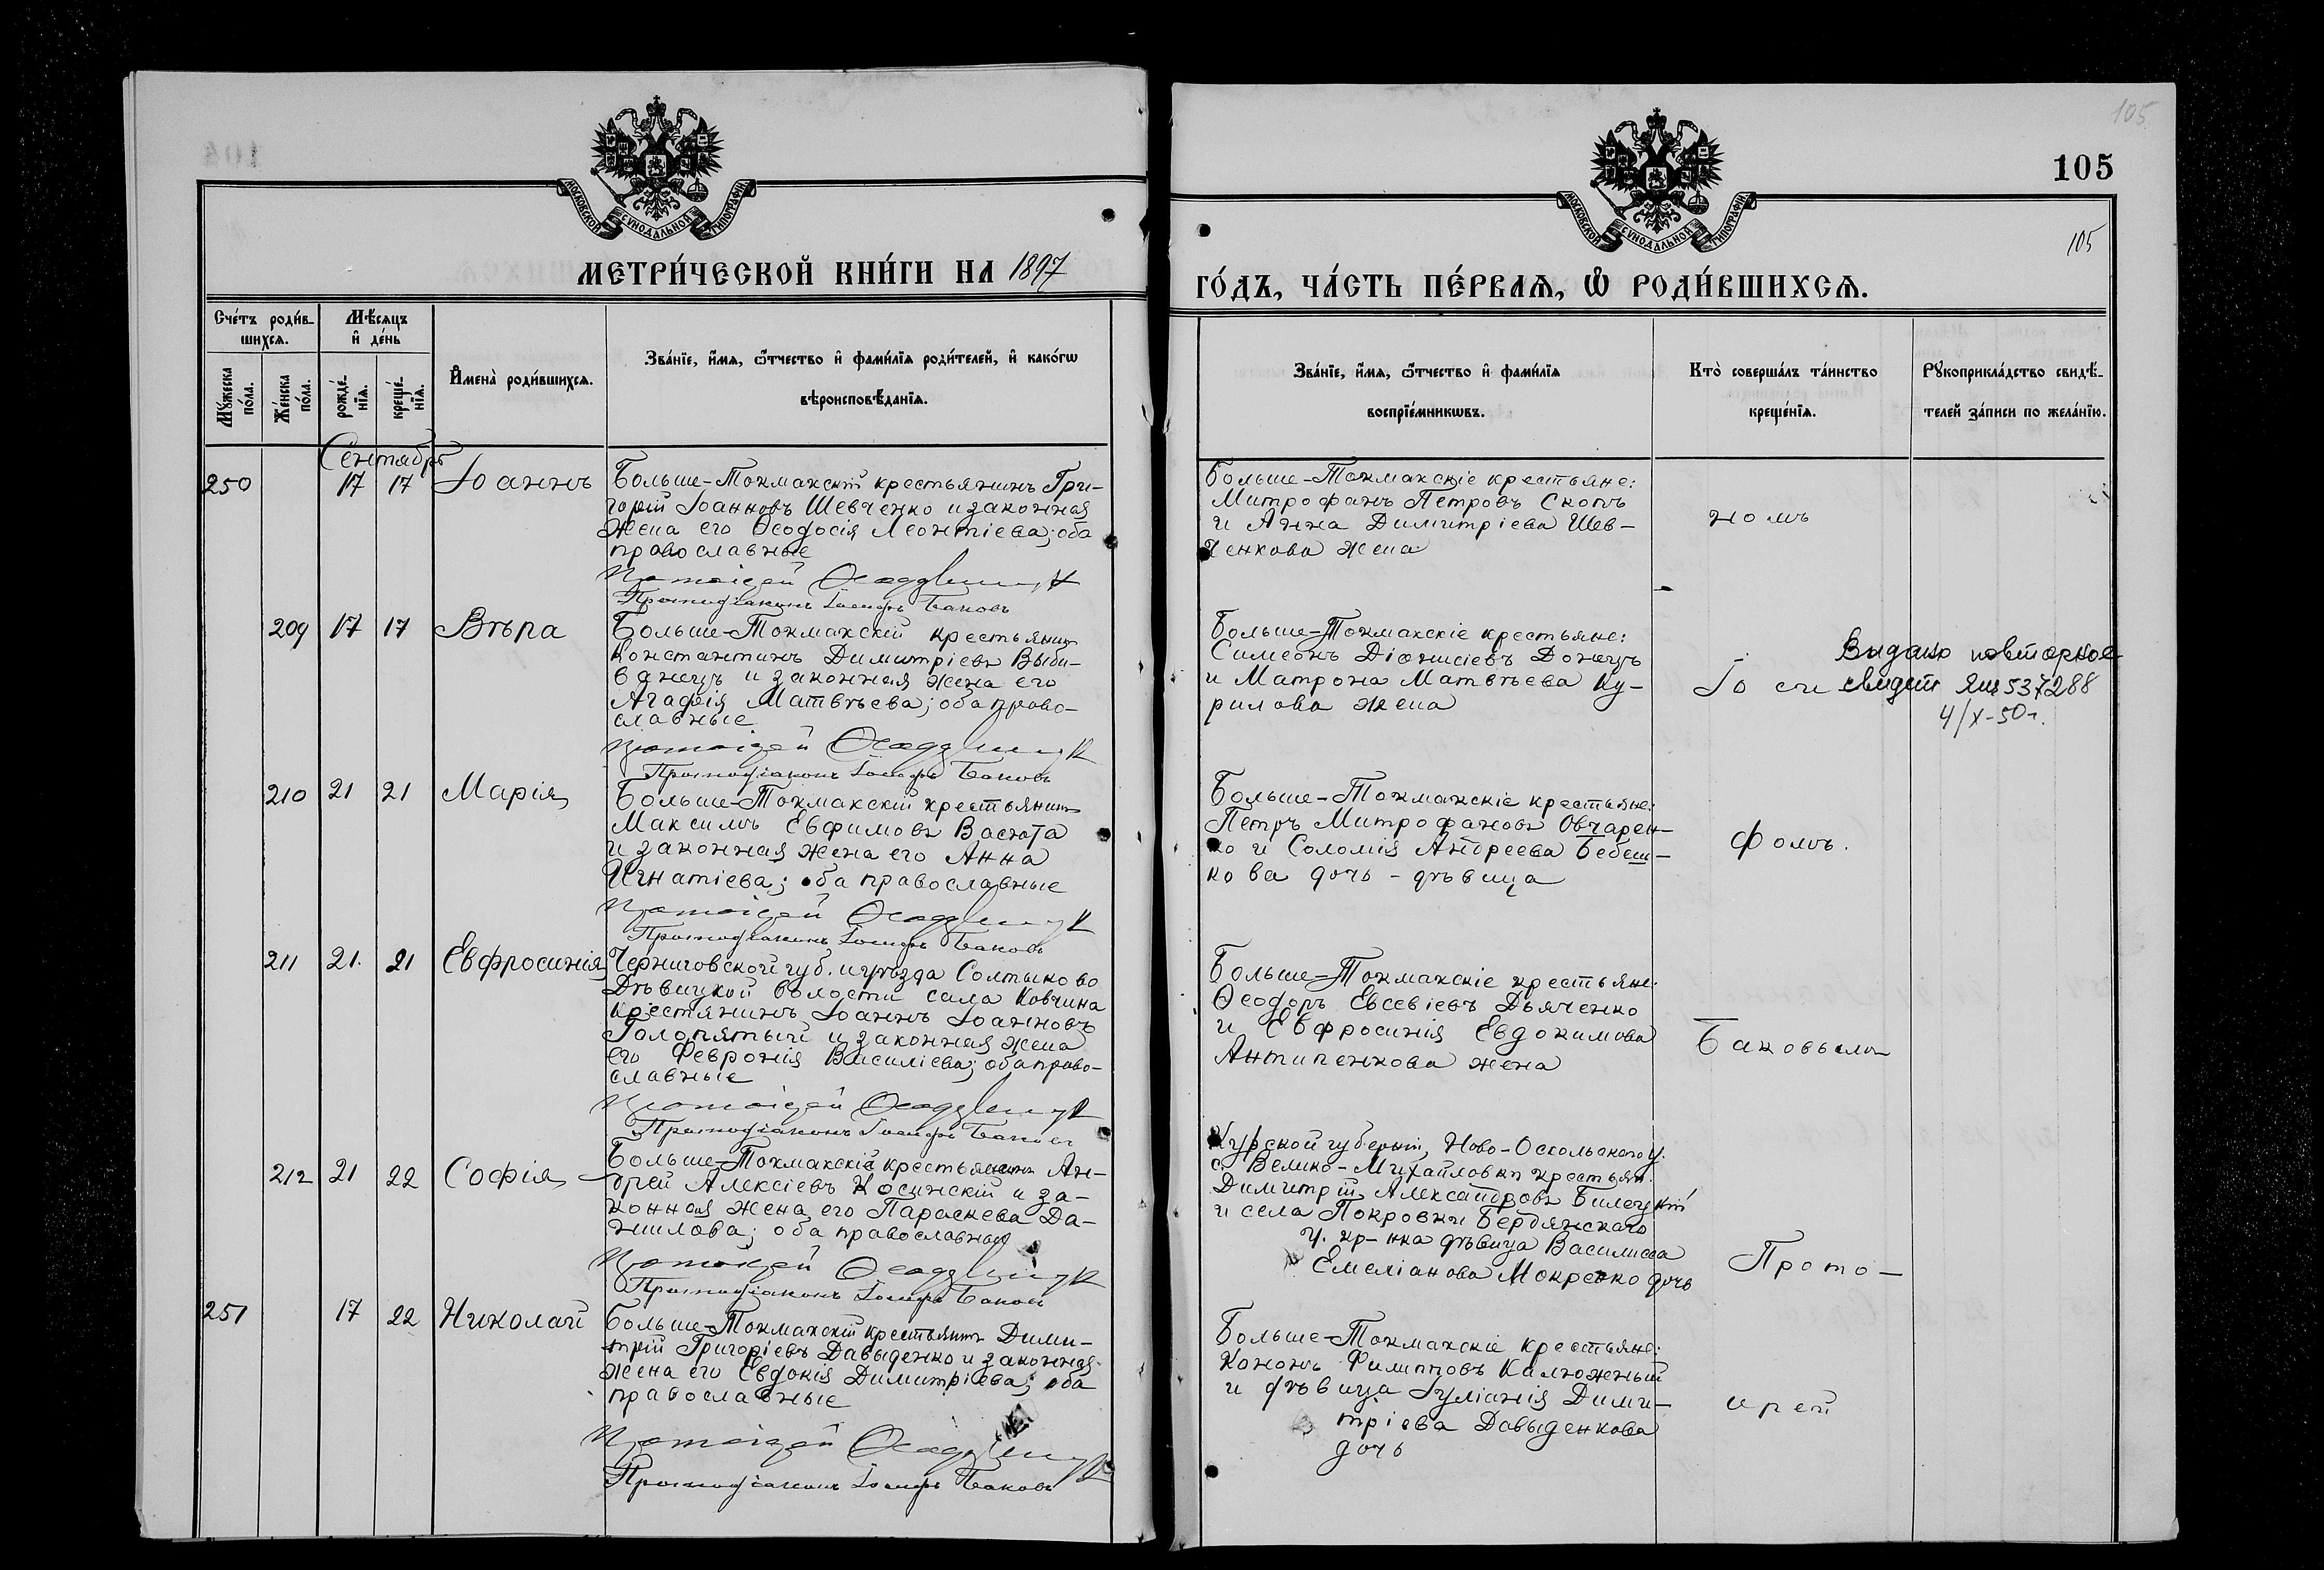 МОСКОВСКОЙ СѴНОДАЛЬНОЙ ТИПОГРАФІИ
МЕТРИ́ЧЕСКОЙ КНИ́ГИ НА 1897
Сче́тъ роди́в-
шихсѧ.
Мѣ́сѧцъ
и҆ де́нь
Мꙋ́жеска
по́ла.
Же́нска
по́ла.
рожде́-
нїѧ.
креще́-
нїѧ.
И҆мена̀ роди́вшихсѧ.
Зва́нїе, и҆́мѧ, ѻ҆́тчество и҆ фами́лїѧ роди́телей, и҆ како́гѡ
вѣроисповѣ́данїѧ.
Сентябрь
250 17 17 Іоаннъ
Больше-Токмакскій крестьянинъ Гри-
горій Іоанновъ Шевченко и законная
жена его Ѳеодосія Леонтіева; оба
православные
Протодіаконъ Іосифъ Баковъ
209 17 17 Вѣра
Больше-Токмакскій крестьянинъ
Константинъ Димитріевъ Выби-
ванецъ и законная жена его
Агафія Матвѣева; оба право-
славные
Протодіаконъ Іосифъ Баковъ
210 21 21 Марія
Больше-Токмакскій крестьянинъ
Максимъ Евфимовъ Васюта
и законная жена его Анна
Игнатіева; оба православные
Протодіаконъ Іосифъ Баковъ
211 21. 21 Евфросинія
Черниговской губ. и уѣзда Солтыково
Дѣвицкой волости села Ковчина
крестянинъ Іоаннъ Іоанновъ
Голопятый и законная жена
его Февронія Василіева; оба право-
славные
Протодіаконъ Іосифъ Баковъ
212 21 22 Софія
Больше-Токмакскій крестьянинъ Ан-
дрей Алексіевъ Косинскій и за-
конная жена его Параскева Да-
нилова; оба православные
Протодіаконъ Іосифъ Баковъ
251 17 22 Николай
Больше-Токмакскій крестьянинъ Дими-
трій Григоріевъ Давыденко и законная
жена его Евдокія Димитріева; оба
православные
Протодіаконъ Іосифъ Баковъ
105
105
105
МОСКОВСКОЙ СѴНОДАЛЬНОЙ ТИПОГРАФІИ
ГО́ДЪ, ЧА́СТЬ ПЕ́РВАѦ, Ѡ҆ РОДИ́ВШИХСѦ.
Зва́нїе, и҆́мѧ, ѻ҆́тчество и҆ фами́лїѧ
воспрїе́мникѡвъ.
Кто̀ соверша́лъ та́инство
креще́нїѧ.
Рꙋкоприкла́дство свидѣ́-
телей за́писи по жела́нїю.
Больше-Токмакскіе крестьяне:
Митрофанъ Петровъ Скопъ
и Анна Димитріева Шев-
ченкова жена
Больше-Токмакскіе крестьяне:
Симеонъ Діонисіевъ Донецъ
и Матрона Матвѣева Ку-
рилова жена
Іоси
Выдано повторное
свидет ЯШ 537288
4/X-50г.
Больше-Токмакскіе крестьяне:
Петръ Митрофановъ Овчарен-
ко и Соломія Андреева Бебеш-
кова дочь - дѣвица
фомъ.
Больше-Токмакскіе крестьяне:
Ѳеодоръ Евсевіевъ Дьяченко
и Евфросинія Евдокимова
Антипенкова жена
Баковымъ
Курской губерніи, Ново-Оскольскаго у.
с. Велико-Михайловки крестьян.
Димитрій Александровъ Билецкій
и села Покровки Бердянскаго
у. кр-нка дѣвица Василисса
Емеліанова Мокренко дочь
Прото-
Больше-Токмакскіе крестьяне:
Кононъ Филипповъ Калюженый
и дѣвица Іуліанія Дими-
тріева Давыденкова
дочь
ерей